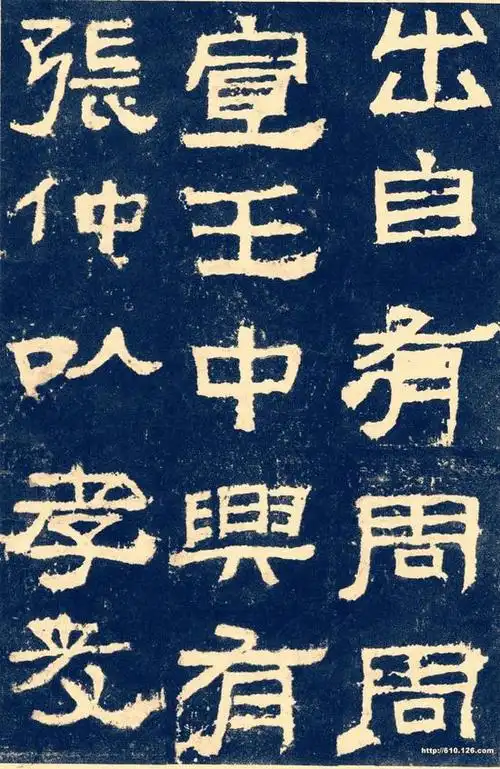 出自有周周
宣王中興有
張仲以孝友
http://610.126.com